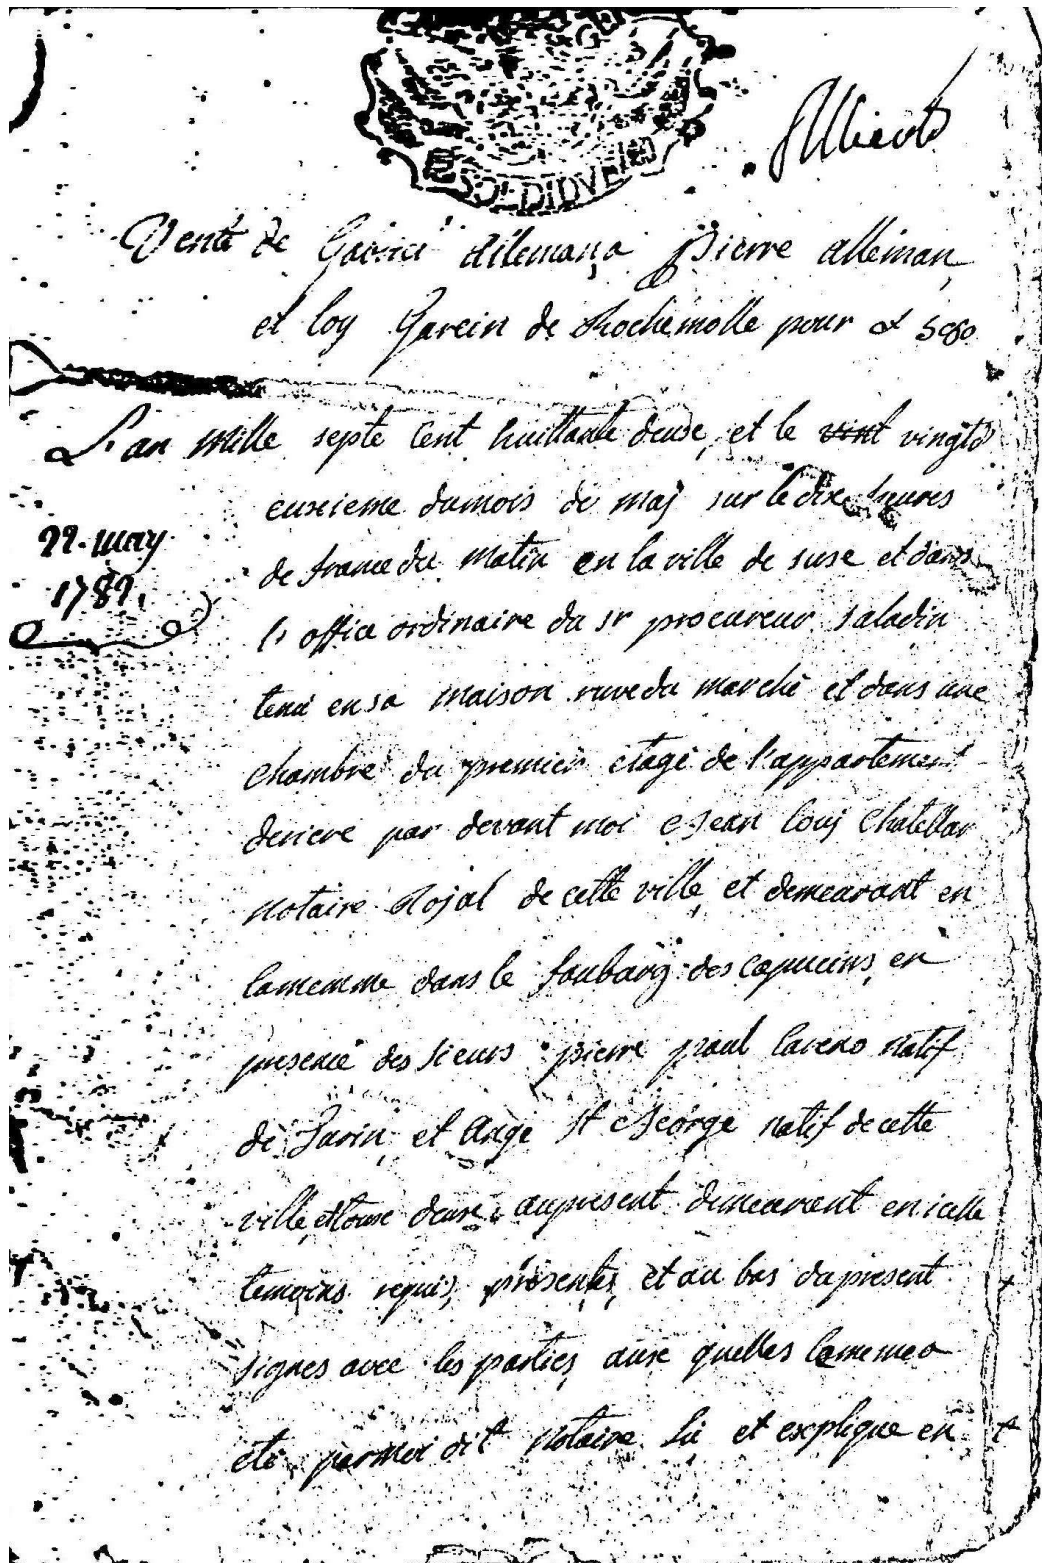 SOLDI DVE
Vente de allemana pierre alleman
et loy Garcin de Rochemolle pour
L'an Mille septe Cent huittante deuse, et le vint vingtd
euxieme dumois de maj sur le dix heures
22. may
1782.
de france du Matin en la ville de suse et dans
l'office ordinaire du sr procureur saladin
tenu en sa maison ruvedu marché et dans une
Chambre du premier etage de l'appartement
deriere par devant moi Jean Louj Chatellar
Notaire Rojal de cette ville, et demeurant en
lamemme dans le faubourg des capucins, en
presence des sieurs pierre paul natif
de Turin, et Ange St George natif de cette
ville, et tous deuse aupresent demeurant en icelle
temoins requis, presents, et au bas dupresent
signes avec les parties, auxe quelles lamemea
eté parmoi dit Notaire lu et explique en